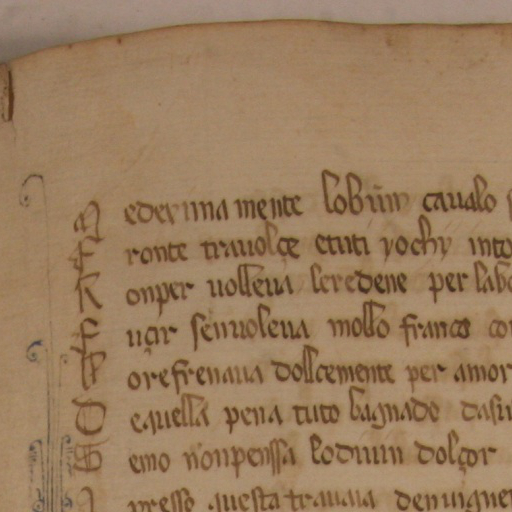 M edexima mente lobum caualo
F ronte trauolçe etuti yochy into
R onper uolleua leredene per labo
F uçir senuoleua mollo franco co
F orefrenaua dollcemente per amor
D equella pena tuto bagnado dasu
S emo nonpenssa lodiuin dolçor
presso questa trauaia